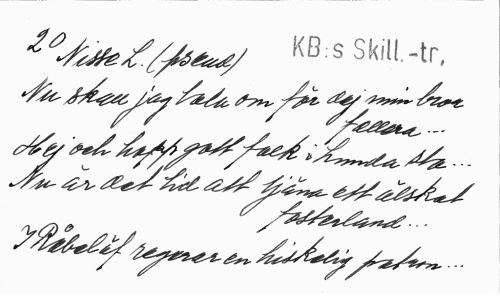 20
Nisse L. (pseud)
KB:s Skill.-tr.
Nu skall jag tala om för dej min bror
fallera...
Hej och hopp gott folk i hunda sta...
Nu är det tid att tjäna ett älskat
fosterland...
I Råbelöf regerar en hiskelig patron...